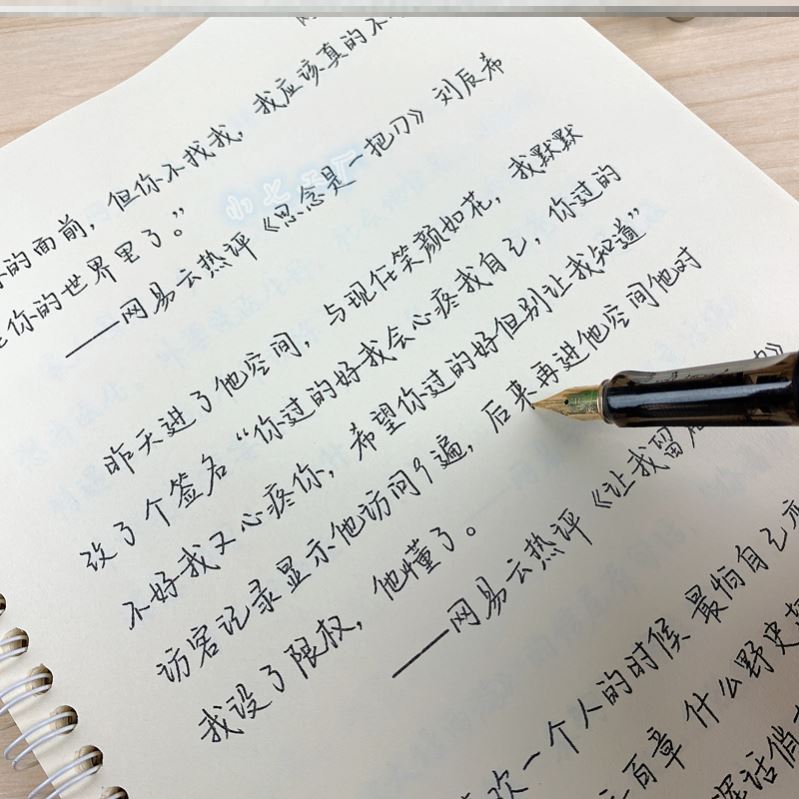 的面前，但你不找我，我应该真的不
你的世界里了。”
——网易云热评《思念是一把刀》刘辰希
昨天进了他空间，与现任笑颜如花，我默默
改了个签名“你过的好我会心疼我自己，你过的
不好我又心疼你，希望你过的好但别让我知道”
访客记录显示他访问9遍，后来再进他空间他对
我设了限权，他懂了。
——网易云热评《让我留
欢一个人的时候 最怕自己
百章 什么野史
话俏